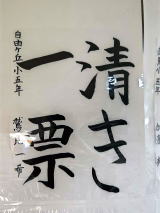 清き
一票
自由ケ丘小五年